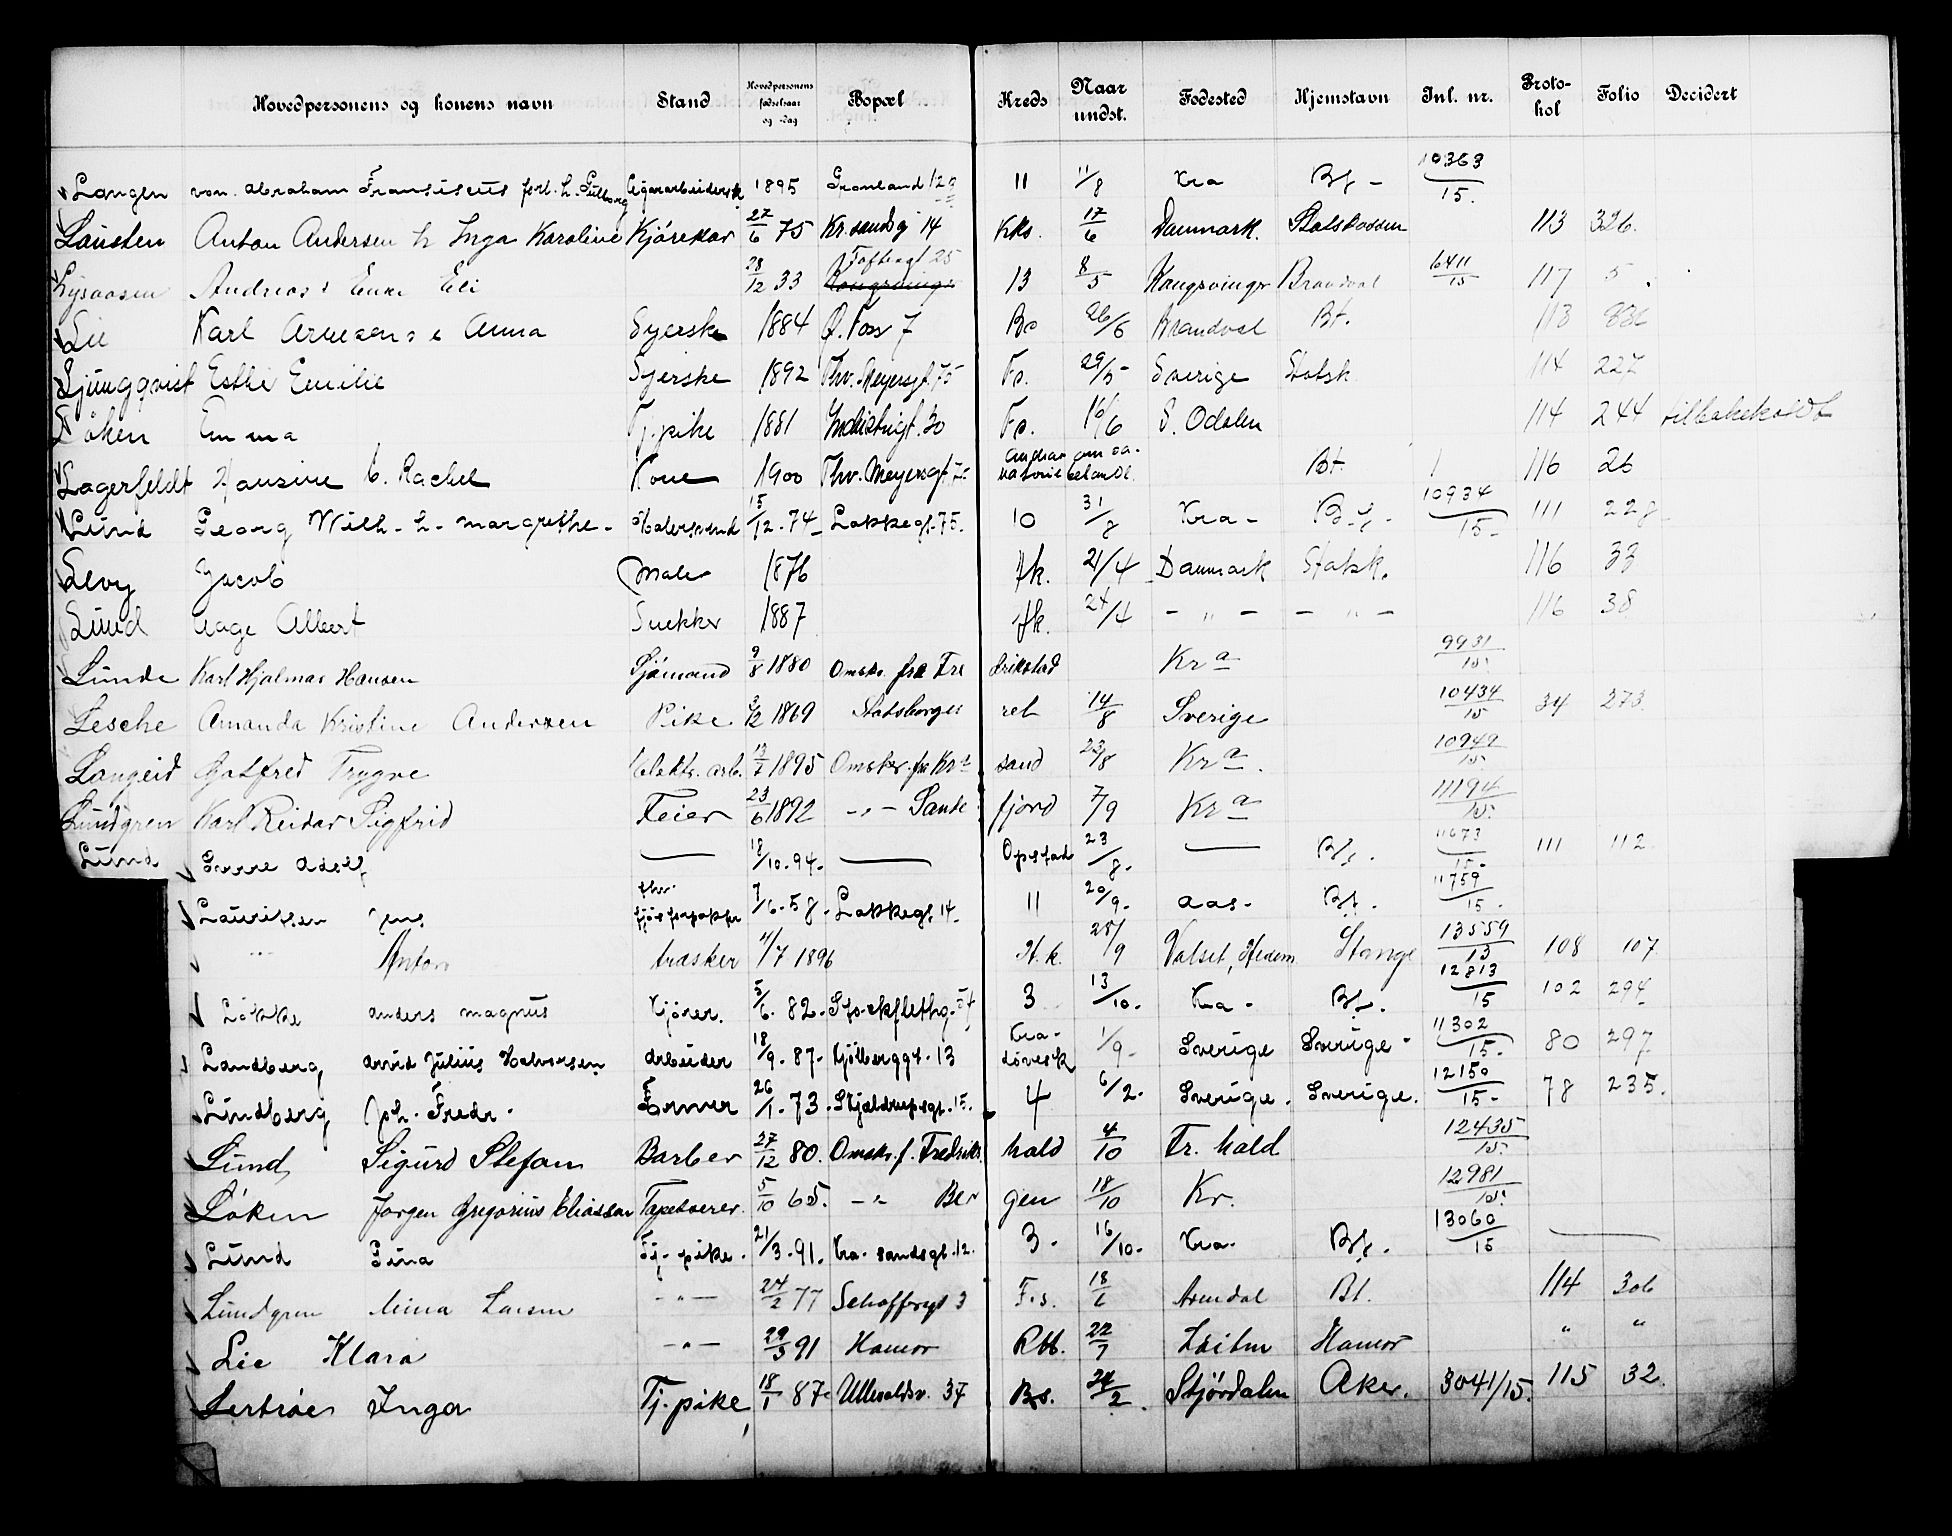 Hovedpersonens og konens navn Stand Hovedpersonens fødselsaar og -dag Bopæl Kreds Naar undst. Fødested Hjemstavn Inl. nr. Protokol Folio Decidert
Langen von Abraham Fransiscus 1895 Grønland 12 11 11/8 Kra Bf - 10363/15.
Lausten Anton Andersen h Inga Karoline Kjørekar 27/6 75 Kr.sandsg 14 Kks. 17/6 Danmark. Statskassen 113 326.
Lysaasen Andreas Enke Eli 28/12 33 Toftesgt 25 13 8/5 Kongsvinger Brandval 6411/15 117 5
Lie Karl Arnesen Anna Syerske 1884 Q. Foss 7 Bo 26/6 Brandval Bt. 113
Ljungqvist Esthi Emilie Syerske 1892 Thv. Meyersgt. 75 Fs. 29/5 Sverige Statsk 114 227
Løken Emma Tj.pike 1881 Industrigt. 30 Fs. 16/6 S. Odalen 114 244 tilbakekaldt
Lagerfeldt Hansine b. Rachel Kone 1900 Thv. Meyersgt. Bt. 116 26
Lund Georg Wilh. h. margrethe. Malersvend 15/12. 74 Lakkegt. 75. 10 31/8 Kra - Bf. 10934/15 111 228
Levy Jacob Maler 1876 Hk. 21/4 Danmark Statsk. 116 33
Lund Aage Albert Snekker 1887 Hk. 24/4 - " - - " - 116 38
Lunde Karl Hjalmar Hansen Sjømand 9/8 1880 Omskr. fra Fre drikstad Kra 9931/15.
Lesche Amanda Kristine Andersen Pike 1869 Statsborger ret 14/8 Sverige 10434/15 34 273.
Langeid Gotfred Trygve Elektr. arb. 1895 Omskr. fra Kra sand 23/8 Kra. 10949/15
Lundgren Karl Reidar Sigfrid Feier 23/6 1892 -"- Sande fjord 7/9 Kra 11194/15.
Lund Adolf 18/10. 94. Opstad 23/8. Bf. 11673/15. 111 112.
Lauritsen Jens 7/6. 58. Lakkegt. 14. 11 20/9. aas. Bf. 11759/15.
" Anton trasker 11/7 1896 H.k. 25/9 Valset, Hedem. Stange 13559/13 108 107.
Løkke anders magnus Kjører. 5/6. 82. 3 13/10. Kra. Bf. 12813/15 102 294
Landberg arvid Julius Halvorsen arbeider 18/9. 87. Kjølberggt. 13 Kra- 1/9. Sverige Sverige. 11302/15. 80 297.
Lindberg Joh. Fredr. Former 26/1. 73. Skjældrupsgt. 15. 4 6/2. Sverige. Sverige. 12150/15. 78 235.
Lund Sigurd Stefan Barber 27/12 80. Omskr. f. Fredriks hald 4/10 Fr. hald 12435/15.
Løken Jørgen Gregorius Eliassen Tapetserer 5/10 65. -"- Ber gen 18/10 Kr. 12981/15.
Lund Gina Tj. pike. 21/3. 91. Kra. sandsgt. 12. 3. 16/10. Kra. Bf. 13060/15
Lundgren Mina Larsen - " - 24/2 77 Schafftsgt 3 F.s. 18/6 Arendal Bt. 114 306
Lie Klara - " - 29/3 91 Hamar Rbb. 22/7 Løiten Hamar " "
Inga Tj.pike, 18/1 87 Ullevoldsv. 37 Bs. 24/2. Stjørdalen Aker. 3041/15. 115 32.